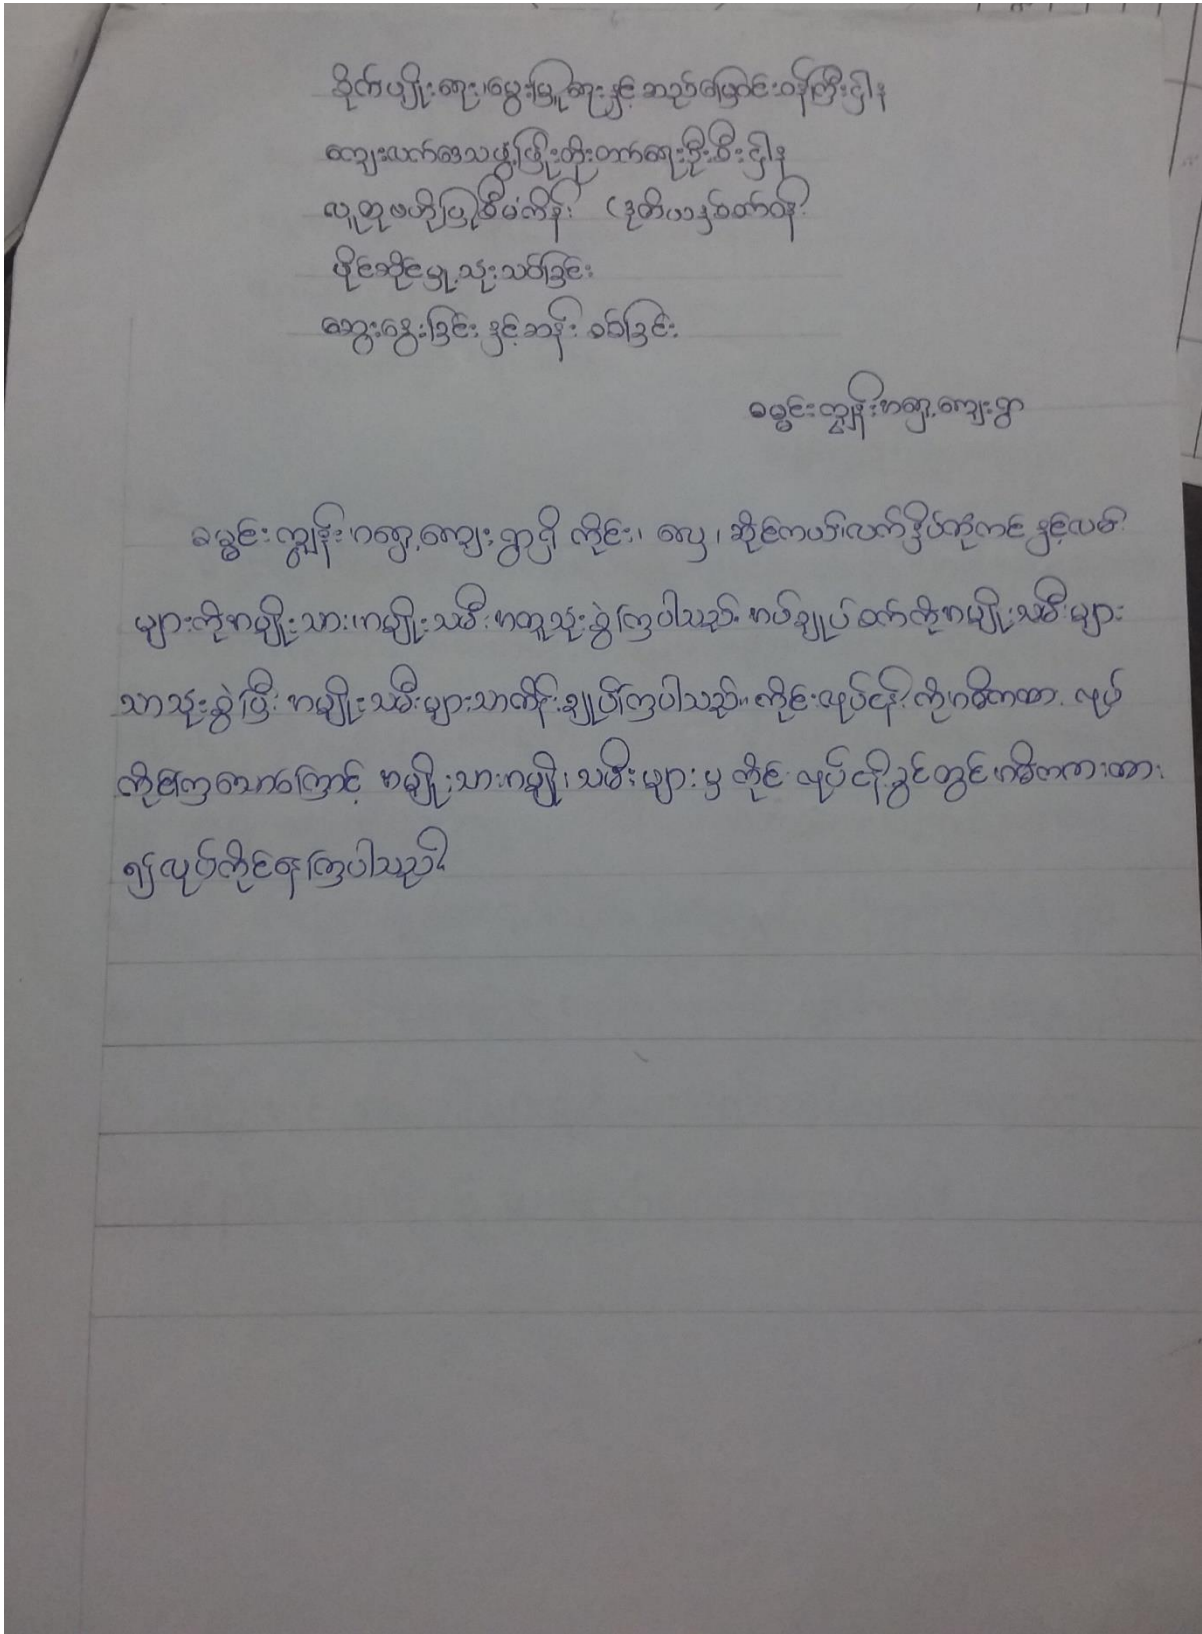 စိုက်ပျိုးရေး၊မွေးမြူရေးနှင့်ဆည်မြောင်းဝန်ကြီးဌါန
ကျေးလက်ဒေသဖွံ့ဖြိုးတိုးတက်ရေးဦးစီးဌါန
လူထုဗဟိုပြုစီမံကိန်း (ဒုတိယနှစ်ပတ်ဝန်း
ပိုင်ဆိုင်မှု့သုံးသပ်ခြင်း
ဆွေးနွေးခြင်းနှင့်ဆန်းစစ်ခြင်း
ခမွင်းကျွန်းအရှေ့ကျေးရွာ
ခမွင်းကျွန်းအရှေ့ကျေးရွာရှိ ကိုင်း၊ လှေ၊ ဆိုင်ကယ်၊လက်နှိပ်တုံကင်နှင့်လမ်း
များကိုအမျိုးသား၊အမျိုးသမီးအတူသုံးစွဲကြပါသည်။ အပ်ချုပ်စက်ကိုအမျိုးသမီးများ
သာသုံးစွဲပြီး အမျိုးသမီးများသာထိန်းချုပ်ကြပါသည်။ ကိုင်းလုပ်ငန်းကိုအဓိကထား လုပ်
ကိုင်ကြသောကြောင့် အမျိုးသားအမျိုးသမီးများမှ ကိုင်းလုပ်ငန်းခွင်တွင်အဓိကထား
၍လုပ်ကိုင်နေကြပါသည်။